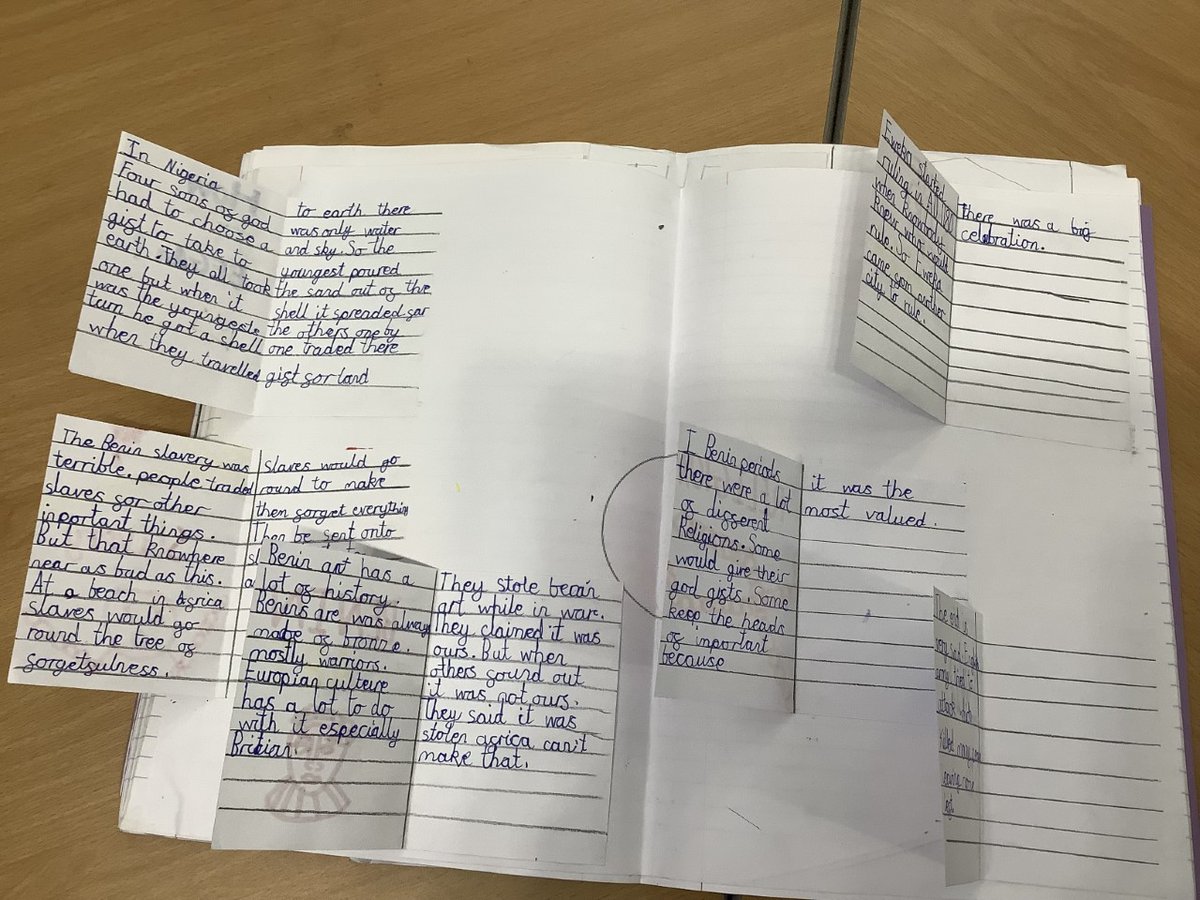 In Nigeria
Four sons of god
had to choose a
gist to take to
earth. They all took
one but when it
was the youngeste
turn he got a shell
when they travelled
to earth there
was only water
and sky. So the
youngest poured
the sand out of the
shell it spreaded far
the others one by
one traded there
gist for land
The Benin slavery was
terrible. people traded
slaves for other
inportant things.
But that knowhere
near as bad as this.
At a beach in africa
slaves would go
round the tree of
forgetfulness.
slaves would go
round to make
then forget everything
Then be sent onto
Benin art has a
lot of history.
Benins are was alway
made of bronne.
mostly warriors.
Europian culteire
has a lot to do
with it especially
Britian.
They stole benin
art while in war.
They claimed it was
ours. But when
others found out
it was not ours.
they said it was
stolen africa can't
make that.
Eweka started
ruling in AD
when knowbody
knew who would
rule. So Eweka
came from another
city to rule.
there was a big
celebration.
I Benin periods
there were a lot
of different
Religions. Some
would give their
god gists. Some
keep the heads
of important
because
it was the
most valued.
The end is
very sad
killed many